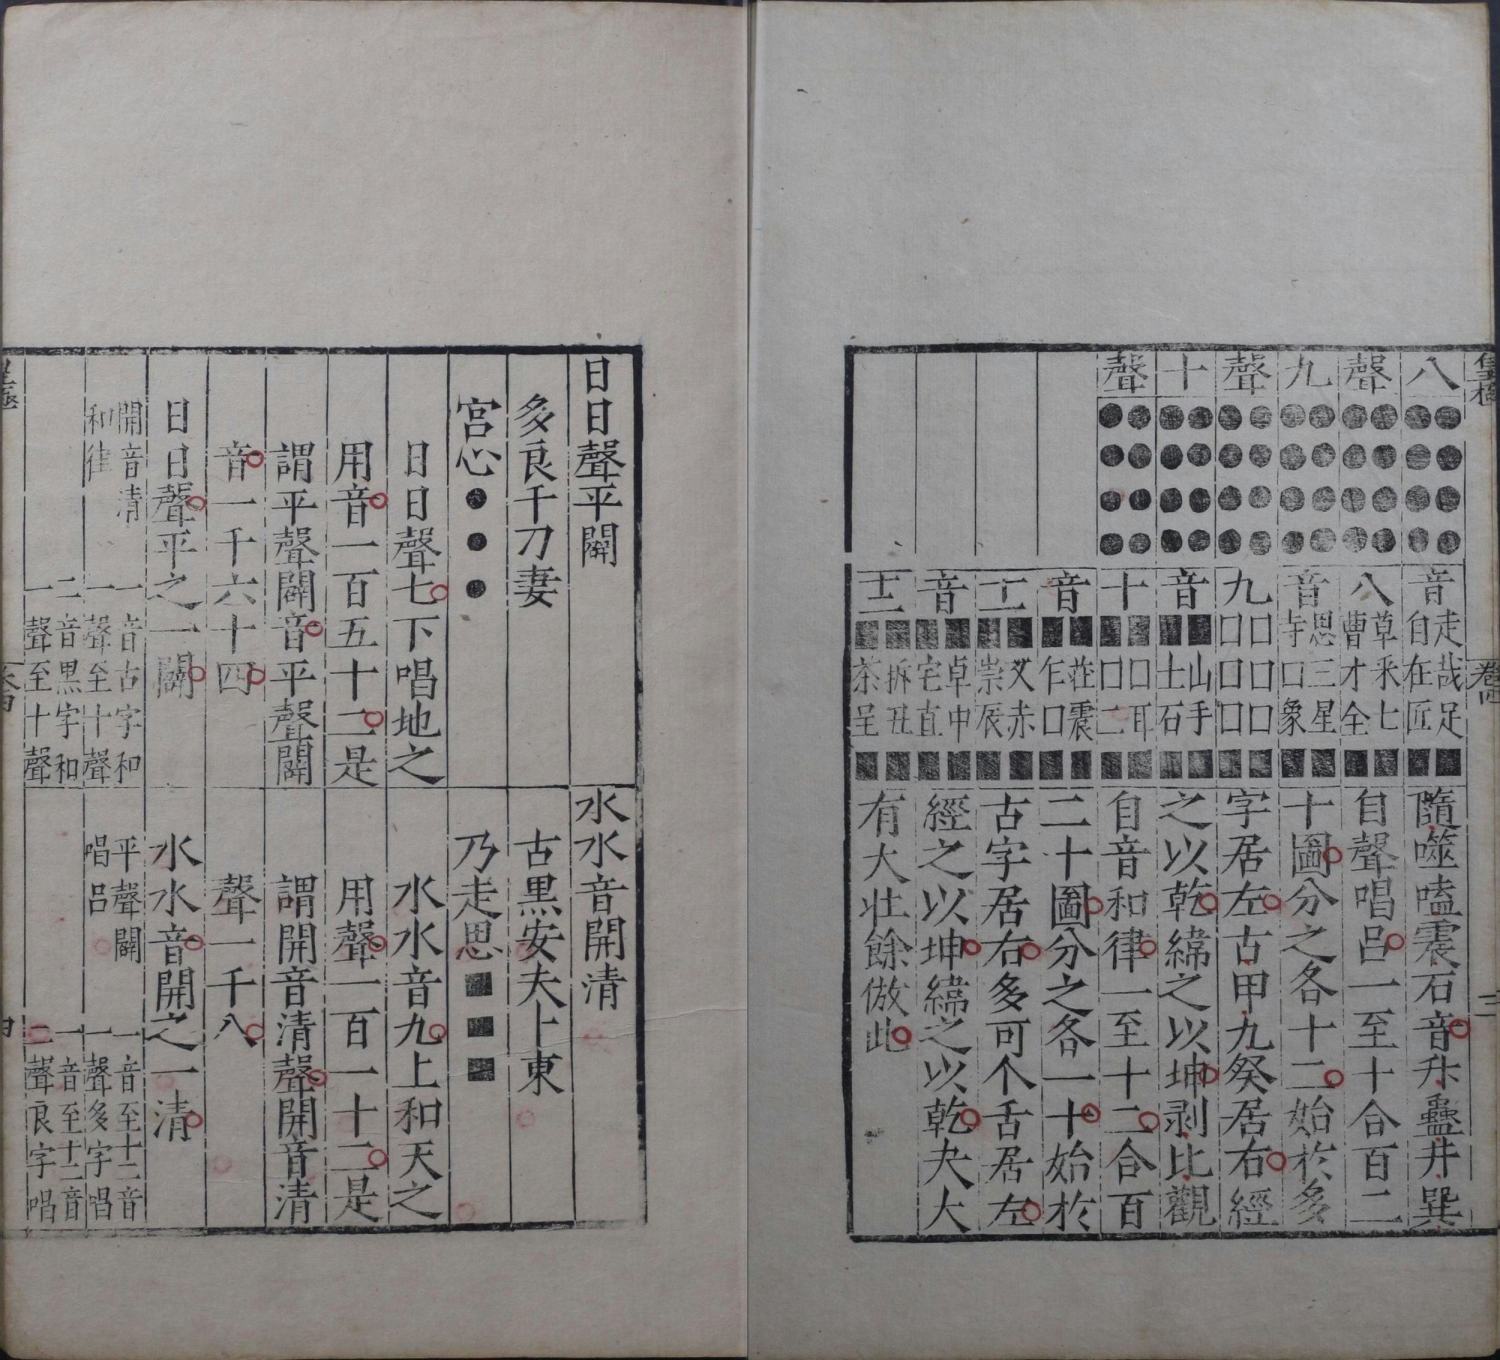 皇極 卷四 三
八 ●●●● ●●●●
聲 ●●●● ●●●●
九 ●●●● ●●●●
聲 ●●●● ●●●●
十 ●●●● ●●●●
聲 ●●●● ●●●●
音 走哉足■ 自在匠■
八 草釆七■ 曹才全■
音 思三星■ 寺口象■
九 口口口■ 口口口■
音 ■山手■ ■士石■
十 ■口耳■ ■口二■
音 ■莊震■ ■乍口■
十一 ■叉赤■ ■崇辰■
音 ■卓中■ ■宅直■
十二 ■拆丑■ ■茶呈■
隨噬嗑震石音升蠱井巽
自聲唱呂一至十合百二
十圖分之各十二始於多
字居左古甲九癸居右經
之以乾緯之以坤剥比觀
自音和律一至十二合百
二十圖分之各一十始於
古字居右多可个舌居左
經之以坤緯之以乾夬大
有大壯餘倣此
日日聲平闢
多良千刀妻
宮心●●●
日日聲七下唱地之
用音一百五十二是
謂平聲闢音平聲闢
音一千六十四
日日聲平之一闢
開音清
和律
一音古字和
一聲至十聲
二音黒字和
一聲至十聲
水水音開清
古黒安夫卜東
乃走思■■■
水水音九上和天之
用聲一百一十二是
謂開音清聲開音清
聲一千八
水水音開之一清
平聲闢
唱呂
一音至十二音
一聲多字唱
一音至十二音
二聲良字唱
皇極 卷四 四